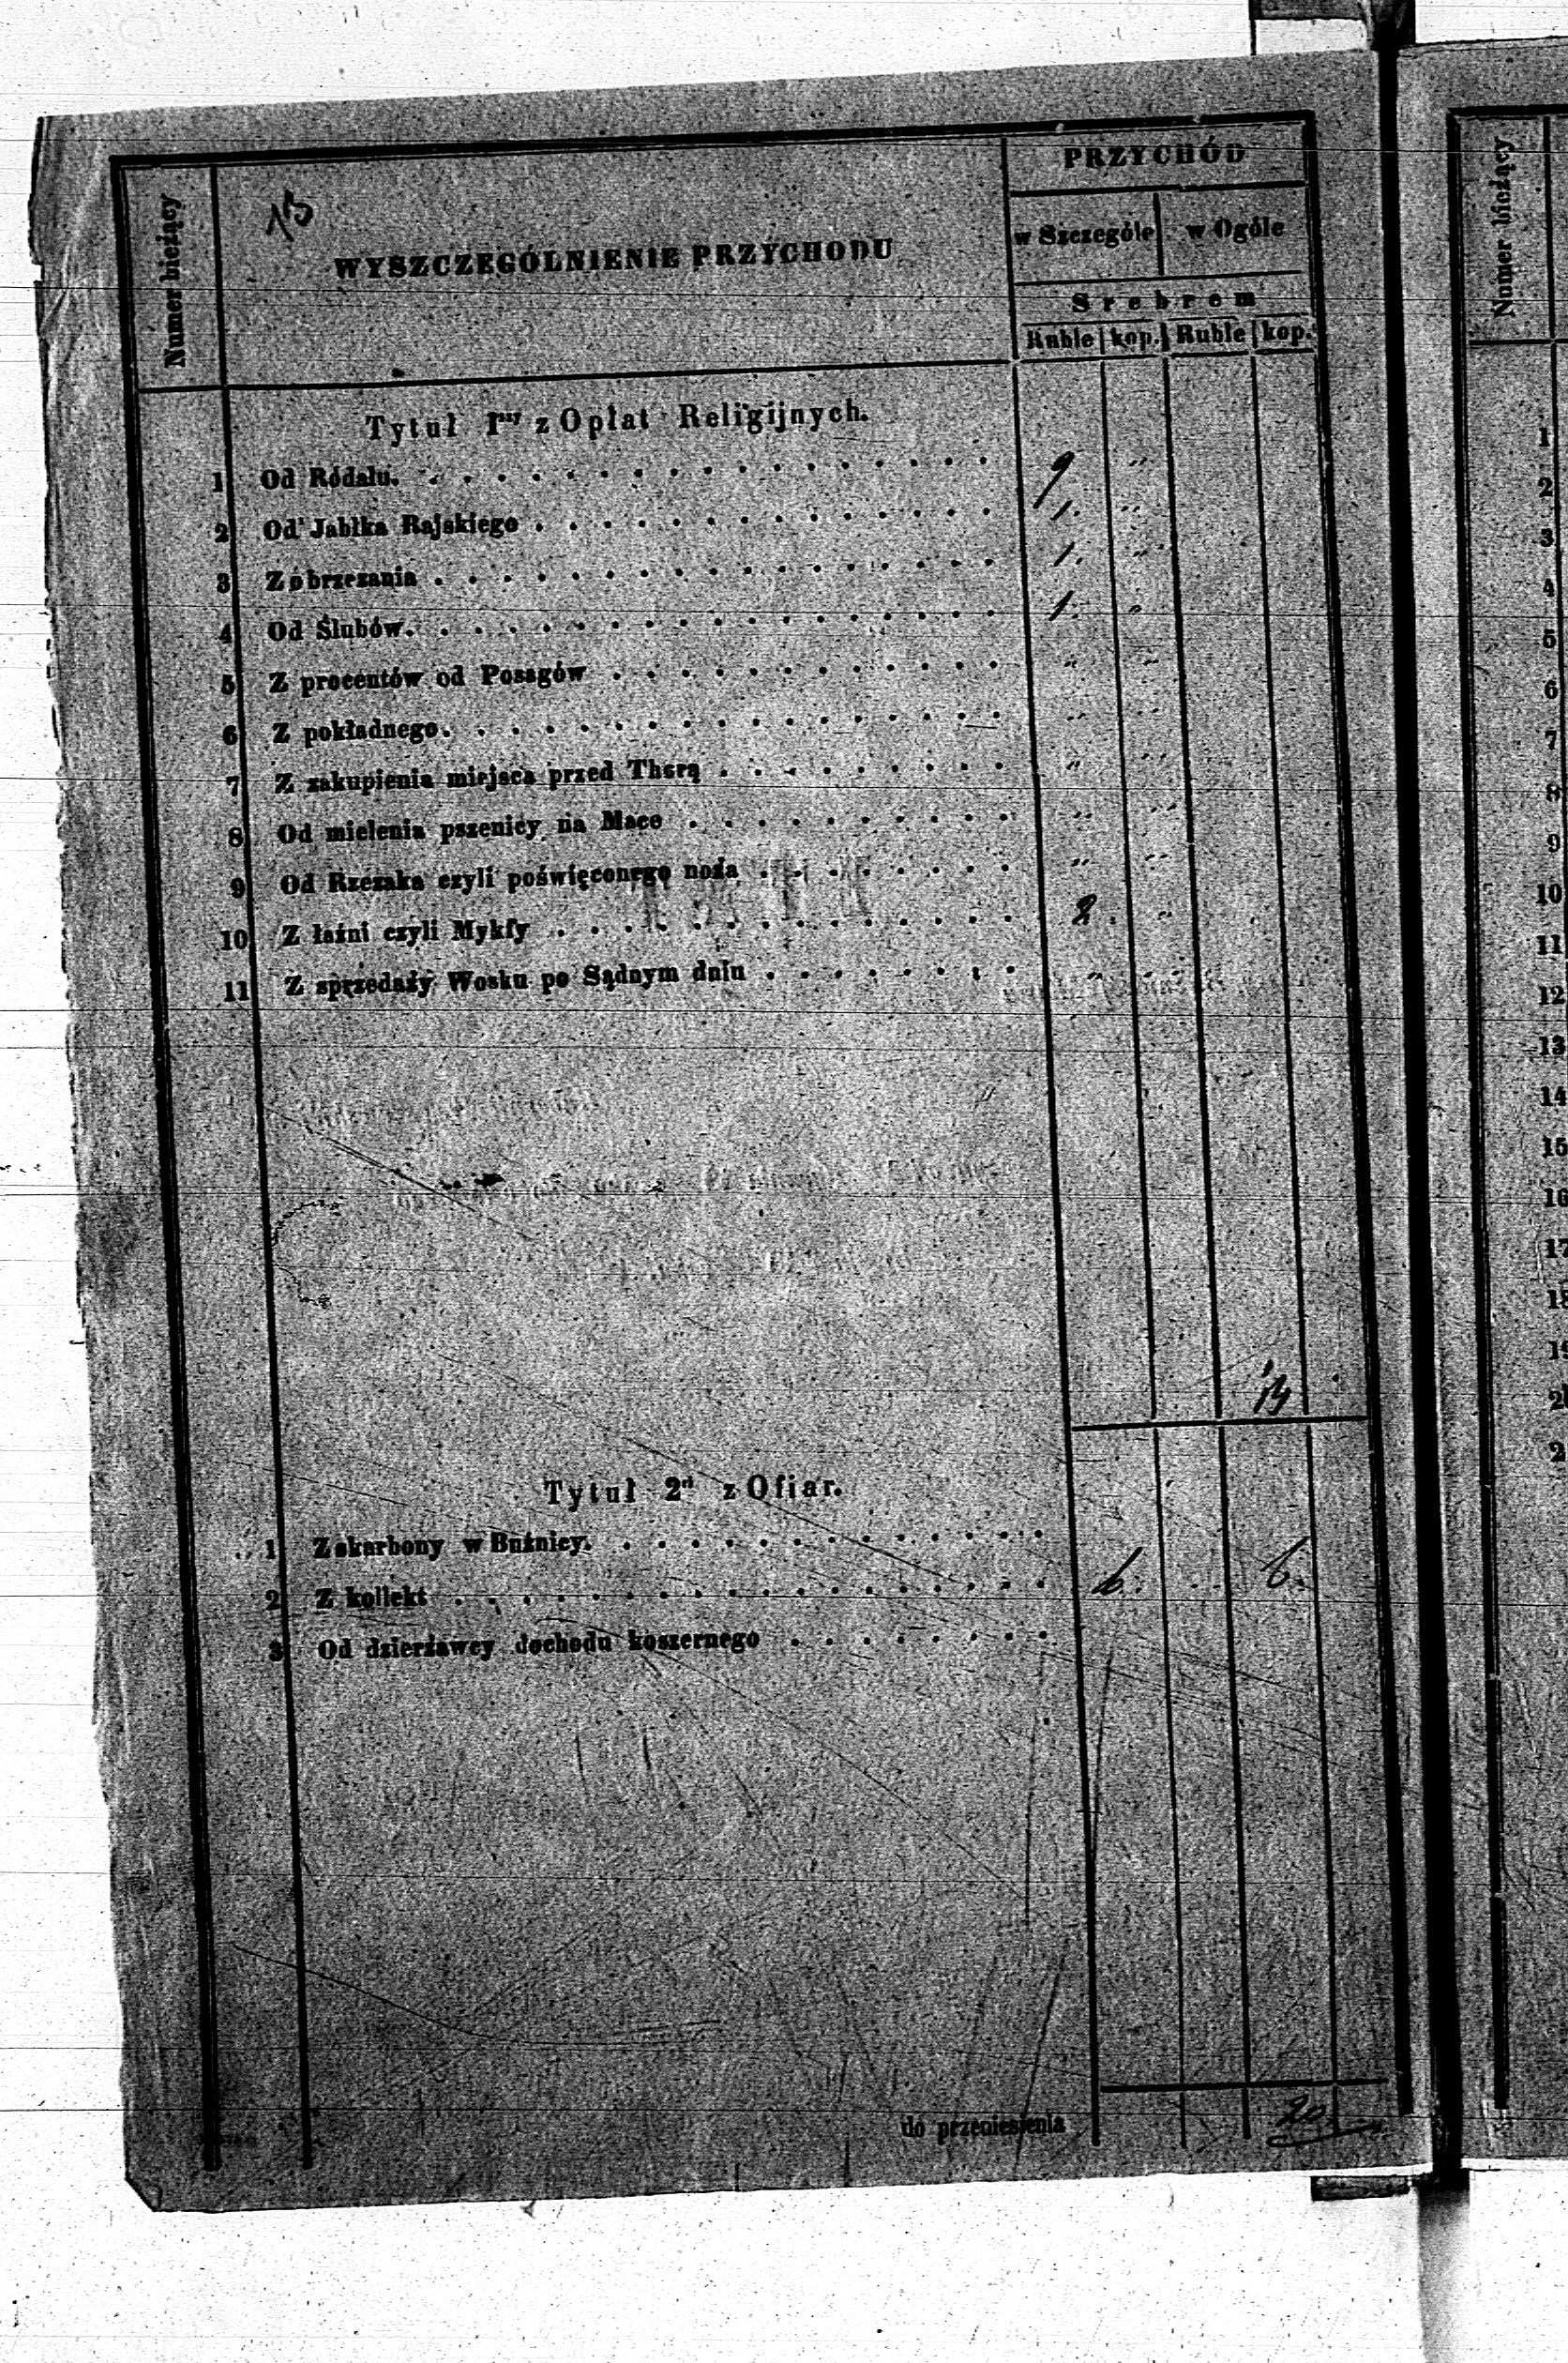 13
PRZYCHÓD
Numer bieżący
WYSZCZEGÓLNIENIE PRZYCHODU
w Szczególe w Ogóle
Srebrem
Ruble kop. Ruble kop.
Tytuł 1szy z Opłat Religijnych.
1 Od Ródału. 9 "
2 Od Jabłka Rajskiego 1. "
3 Z obrzezania 1. "
4 Od Ślubów. 1. "
5 Z procentów od Posagów " "
6 Z pokładnego. " "
7 Z zakupienia miejsca przed Thorą " "
8 Od mielenia pszenicy na Mace " "
9 Od Rzezaka czyli poświęconego noża " "
10 Z łaźni czyli Mykfy 2. "
11 Z sprzedaży Wosku po Sądnym dniu "
14
Tytuł 2gi z Ofiar.
1 Z skarbony w Bużnicy.
2 Z kollekt 6. 6.
3 Od dzierżawcy dochodu koszernego
do przeniesienia 20
Numer bieżący
1
2
3
4
5
6
7
8
9
10
11
12
13
14
15
16
17